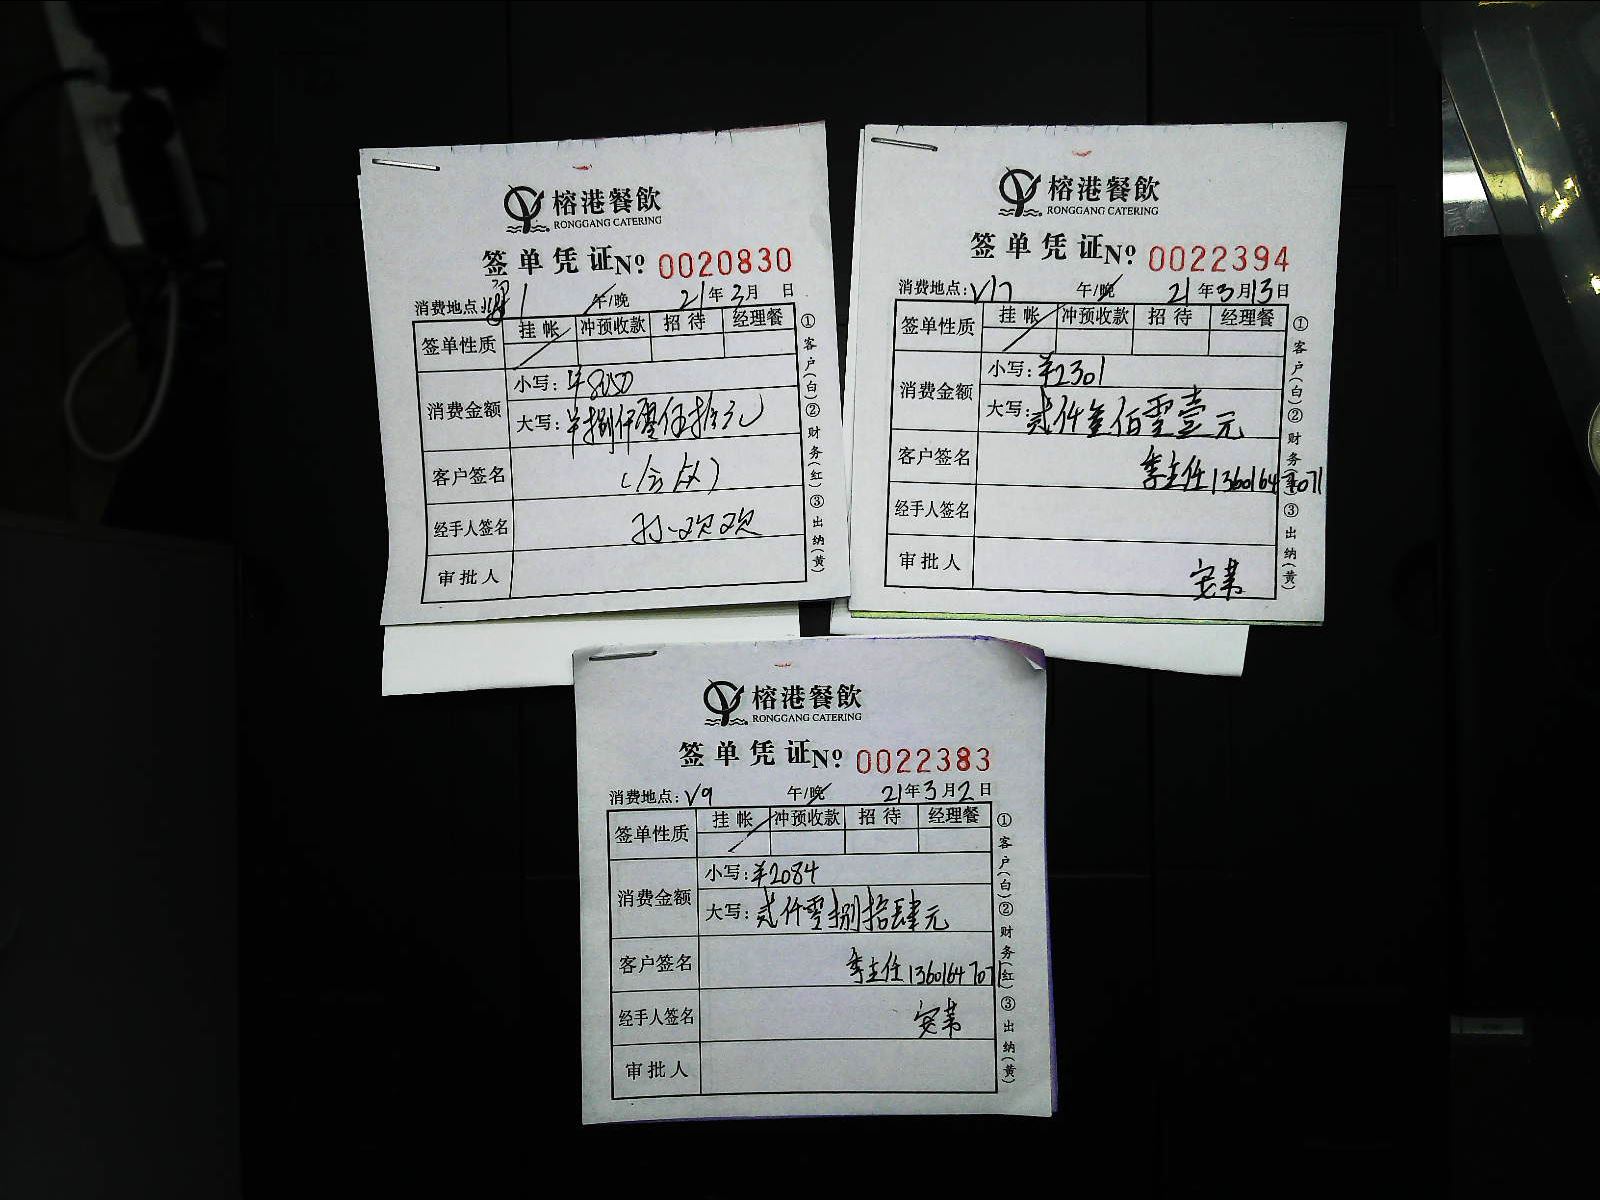 榕港餐飲
RONGGANG CATERING
签单凭证 No: 0020830
消费地点: 1 午/晚 21年3月 日
签单性质 挂帐 冲预收款 招待 经理餐
消费金额 小写: ¥8050
大写: 捌仟零伍拾元
客户签名
经手人签名 孙欢欢
审批人
①客户(白)②财务(红)③出纳(黄)
榕港餐飲
RONGGANG CATERING
签单凭证 No: 0022394
消费地点: V17 午/晚 21年3月13日
签单性质 挂帐 冲预收款 招待 经理餐
消费金额 小写: ¥2301
大写: 贰仟叁佰零壹元
客户签名 李主任 13601647071
经手人签名
审批人 安苇
①客户(白)②财务(红)③出纳(黄)
榕港餐飲
RONGGANG CATERING
签单凭证 No: 0022383
消费地点: V9 午/晚 21年3月2日
签单性质 挂帐 冲预收款 招待 经理餐
消费金额 小写: ¥2084
大写: 贰仟零捌拾肆元
客户签名 李主任 13601647071
经手人签名 安苇
审批人
①客户(白)②财务(红)③出纳(黄)